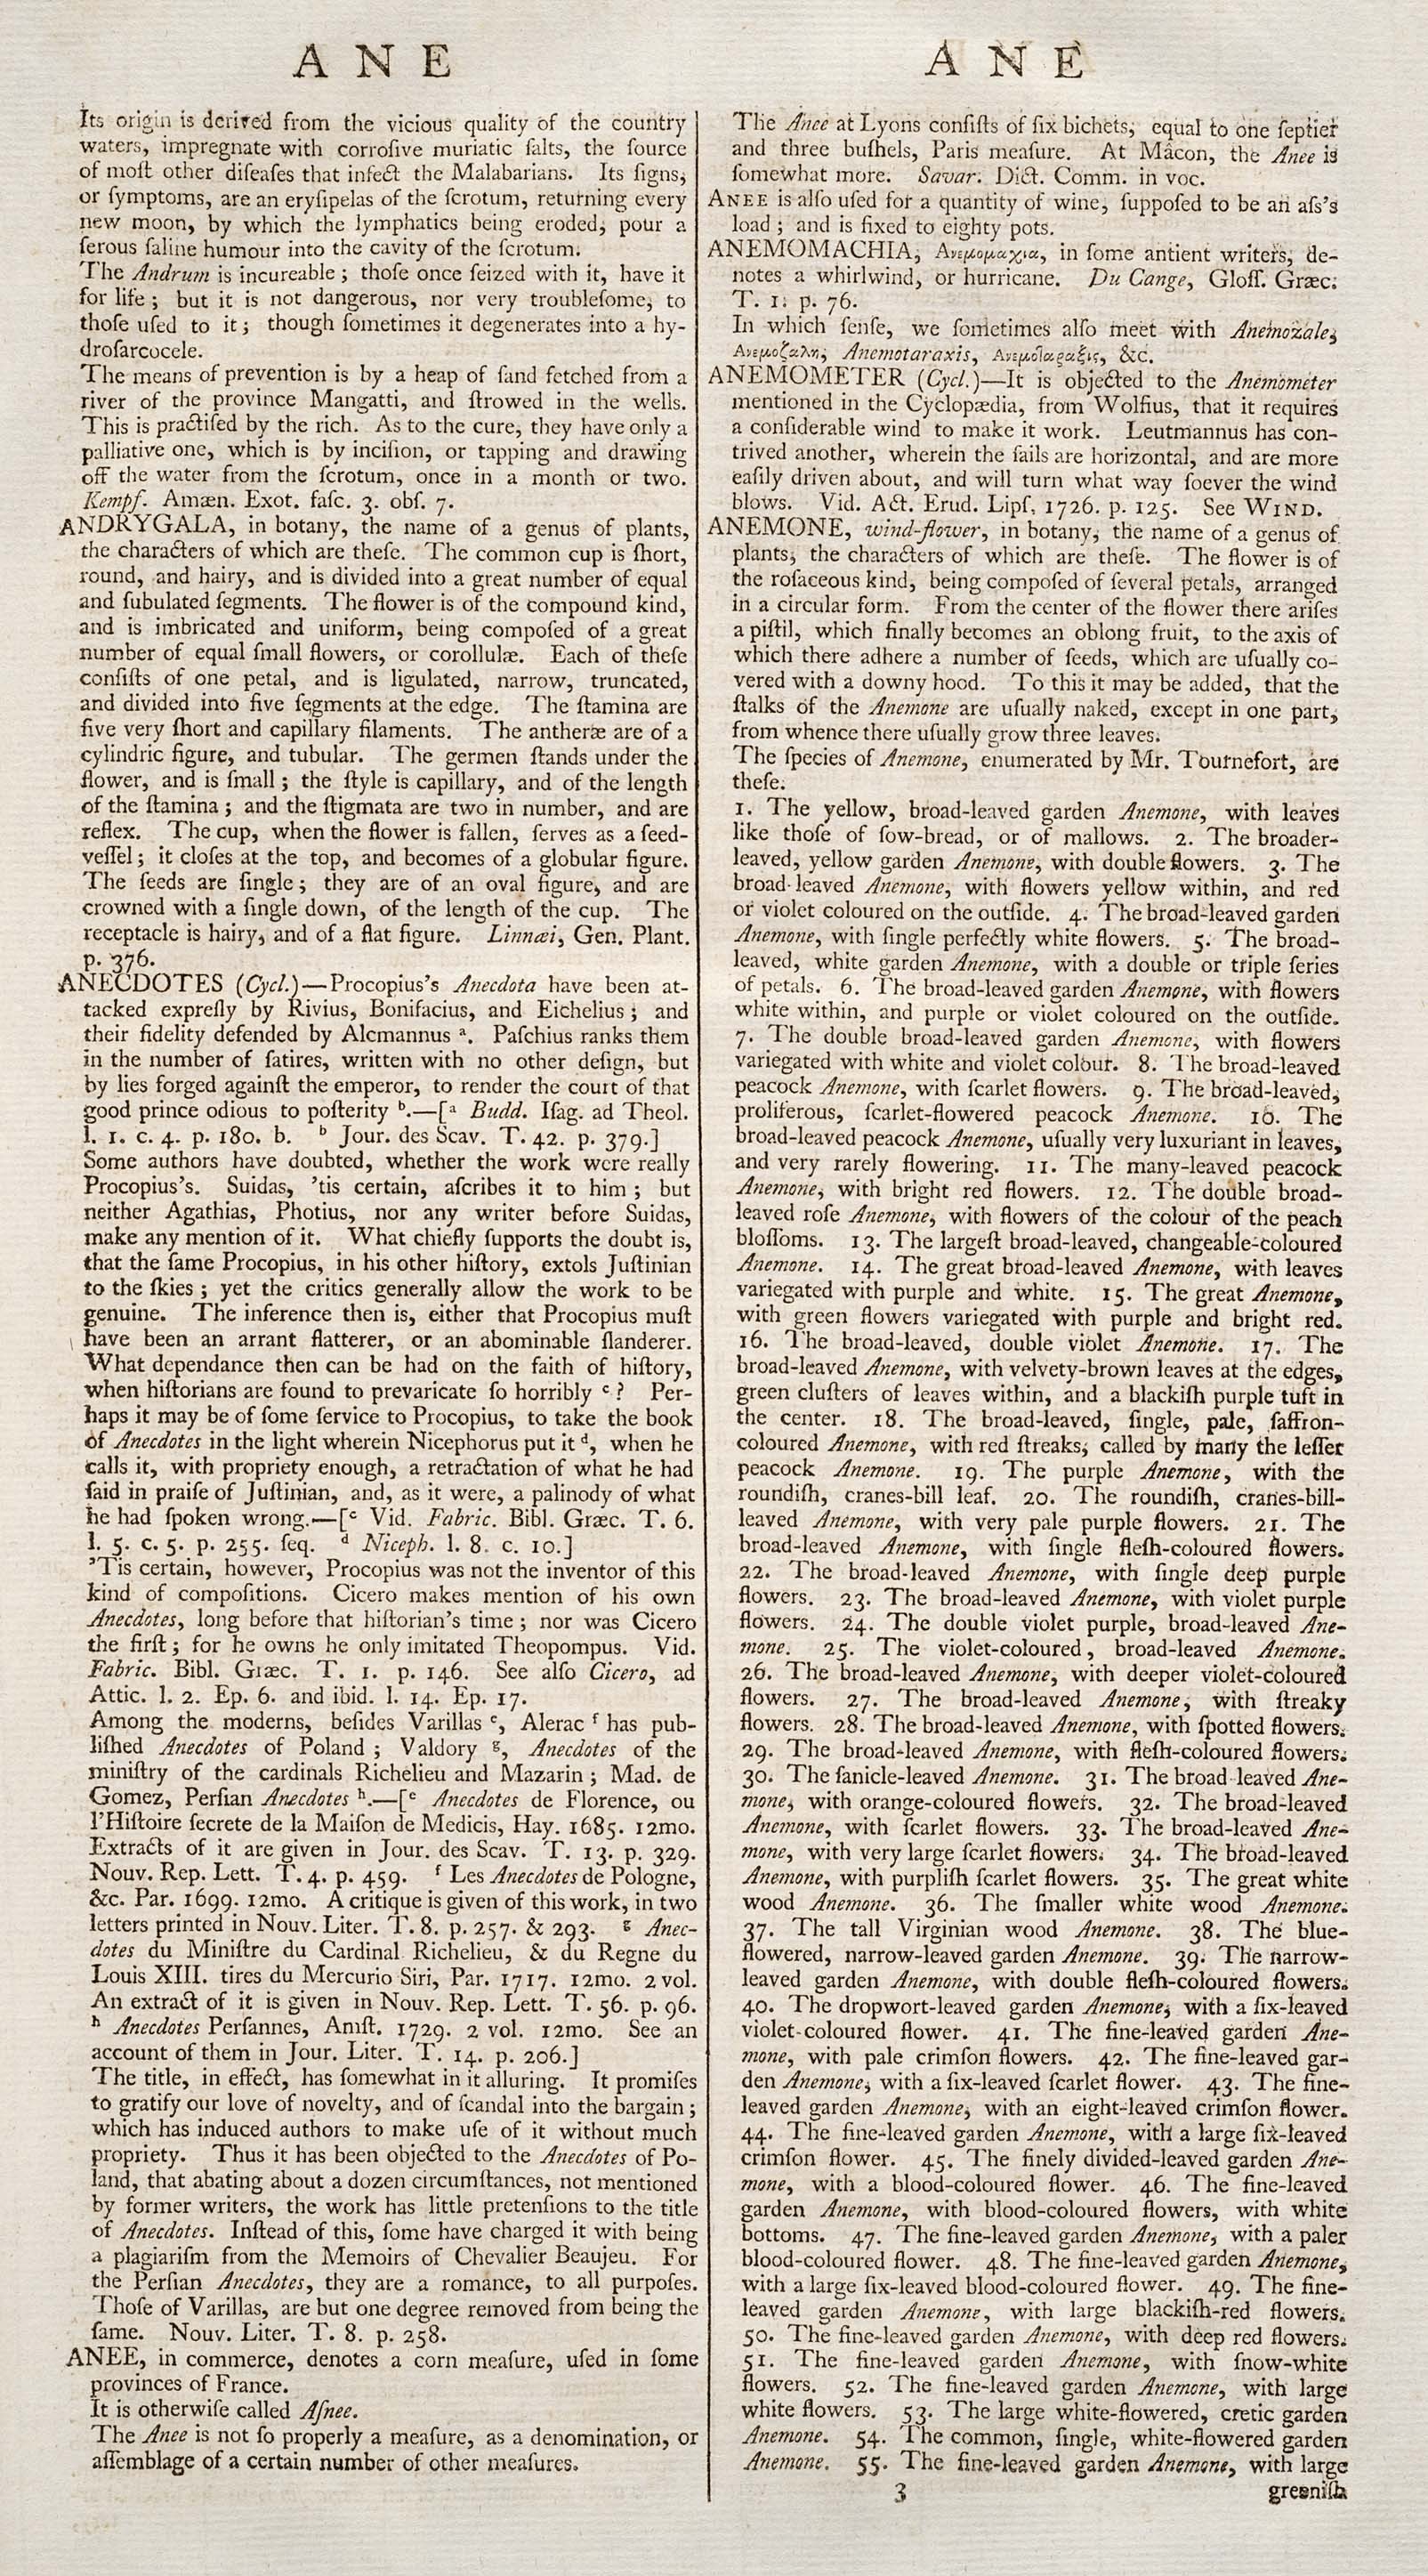 A N E
Its origin is derived from the vicious quality of the country
waters, impregnate with corroſive muriatic ſalts, the ſource
of moſt other diſeaſes that infect the Malabarians. Its ſigns,
or ſymptoms, are an eryſipelas of the ſcrotum, returning every
new moon, by which the lymphatics being eroded, pour a
ſerous ſaline humour into the cavity of the ſcrotum.
The Andrum is incureable ; thoſe once ſeized with it, have it
for life ; but it is not dangerous, nor very troubleſome, to
thoſe uſed to it ; though ſometimes it degenerates into a hy-
droſarcocele.
The means of prevention is by a heap of ſand fetched from a
river of the province Mangatti, and ſtrowed in the wells.
This is practiſed by the rich. As to the cure, they have only a
palliative one, which is by inciſion, or tapping and drawing
off the water from the ſcrotum, once in a month or two.
Kempf. Amæn. Exot. faſc. 3. obſ. 7.
ANDRYGALA, in botany, the name of a genus of plants,
the characters of which are theſe. The common cup is ſhort,
round, and hairy, and is divided into a great number of equal
and ſubulated ſegments. The flower is of the compound kind,
and is imbricated and uniform, being compoſed of a great
number of equal ſmall flowers, or corollulæ. Each of theſe
conſiſts of one petal, and is ligulated, narrow, truncated,
and divided into five ſegments at the edge. The ſtamina are
five very ſhort and capillary filaments. The antheræ are of a
cylindric figure, and tubular. The germen ſtands under the
flower, and is ſmall ; the ſtyle is capillary, and of the length
of the ſtamina ; and the ſtigmata are two in number, and are
reflex. The cup, when the flower is fallen, ſerves as a ſeed-
veſſel ; it cloſes at the top, and becomes of a globular figure.
The ſeeds are ſingle ; they are of an oval figure, and are
crowned with a ſingle down, of the length of the cup. The
receptacle is hairy, and of a flat figure. Linnæi, Gen. Plant.
p. 376.
ANECDOTES (Cycl.)—Procopius's Anecdota have been at-
tacked expreſly by Rivius, Bonifacius, and Eichelius ; and
their fidelity defended by Alcmannus ª. Paſchius ranks them
in the number of ſatires, written with no other deſign, but
by lies forged againſt the emperor, to render the court of that
good prince odious to poſterity ᵇ.—[ª Budd. Iſag. ad Theol.
l. 1. c. 4. p. 180. b. ᵇ Jour. des Scav. T. 42. p. 379.]
Some authors have doubted, whether the work were really
Procopius's. Suidas, 'tis certain, aſcribes it to him ; but
neither Agathias, Photius, nor any writer before Suidas,
make any mention of it. What chiefly ſupports the doubt is,
that the ſame Procopius, in his other hiſtory, extols Juſtinian
to the ſkies ; yet the critics generally allow the work to be
genuine. The inference then is, either that Procopius muſt
have been an arrant flatterer, or an abominable ſlanderer.
What dependance then can be had on the faith of hiſtory,
when hiſtorians are found to prevaricate ſo horribly ᶜ ? Per-
haps it may be of ſome ſervice to Procopius, to take the book
of Anecdotes in the light wherein Nicephorus put it ᵈ, when he
calls it, with propriety enough, a retractation of what he had
ſaid in praiſe of Juſtinian, and, as it were, a palinody of what
he had ſpoken wrong.—[ᶜ Vid. Fabric. Bibl. Græc. T. 6.
l. 5. c. 5. p. 255. ſeq. ᵈ Niceph. l. 8. c. 10.]
'Tis certain, however, Procopius was not the inventor of this
kind of compoſitions. Cicero makes mention of his own
Anecdotes, long before that hiſtorian's time ; nor was Cicero
the firſt ; for he owns he only imitated Theopompus. Vid.
Fabric. Bibl. Græc. T. 1. p. 146. See alſo Cicero, ad
Attic. l. 2. Ep. 6. and ibid. l. 14. Ep. 17.
Among the moderns, beſides Varillas ᵉ, Alerac ᶠ has pub-
liſhed Anecdotes of Poland ; Valdory ᵍ, Anecdotes of the
miniſtry of the cardinals Richelieu and Mazarin ; Mad. de
Gomez, Perſian Anecdotes ʰ.—[ᵉ Anecdotes de Florence, ou
l'Hiſtoire ſecrete de la Maiſon de Medicis, Hay. 1685. 12mo.
Extracts of it are given in Jour. des Scav. T. 13. p. 329.
Nouv. Rep. Lett. T. 4. p. 459. ᶠ Les Anecdotes de Pologne,
&c. Par. 1699. 12mo. A critique is given of this work, in two
letters printed in Nouv. Liter. T. 8. p. 257. & 293. ᵍ Anec-
dotes du Miniſtre du Cardinal Richelieu, & du Regne du
Louis XIII. tires du Mercurio Siri, Par. 1717. 12mo. 2 vol.
An extract of it is given in Nouv. Rep. Lett. T. 56. p. 96.
ʰ Anecdotes Perſannes, Amſt. 1729. 2 vol. 12mo. See an
account of them in Jour. Liter. T. 14. p. 206.]
The title, in effect, has ſomewhat in it alluring. It promiſes
to gratify our love of novelty, and of ſcandal into the bargain ;
which has induced authors to make uſe of it without much
propriety. Thus it has been objected to the Anecdotes of Po-
land, that abating about a dozen circumſtances, not mentioned
by former writers, the work has little pretenſions to the title
of Anecdotes. Inſtead of this, ſome have charged it with being
a plagiariſm from the Memoirs of Chevalier Beaujeu. For
the Perſian Anecdotes, they are a romance, to all purpoſes.
Thoſe of Varillas, are but one degree removed from being the
ſame. Nouv. Liter. T. 8. p. 258.
ANEE, in commerce, denotes a corn meaſure, uſed in ſome
provinces of France.
It is otherwiſe called Aſnee.
The Anee is not ſo properly a meaſure, as a denomination, or
aſſemblage of a certain number of other meaſures.
A N E
The Anee at Lyons conſiſts of ſix bichets, equal to one ſeptier
and three buſhels, Paris meaſure. At Mâcon, the Anee is
ſomewhat more. Savar. Dict. Comm. in voc.
ANEE is alſo uſed for a quantity of wine, ſuppoſed to be an aſs's
load ; and is fixed to eighty pots.
ANEMOMACHIA, Ανεμομαχια, in ſome antient writers, de-
notes a whirlwind, or hurricane. Du Cange, Gloſſ. Græc.
T. 1. p. 76.
In which ſenſe, we ſometimes alſo meet with Anemozale,
Ανεμοζαλη, Anemotaraxis, Ανεμοταραξις, &c.
ANEMOMETER (Cycl.)—It is objected to the Anemometer
mentioned in the Cyclopædia, from Wolfius, that it requires
a conſiderable wind to make it work. Leutmannus has con-
trived another, wherein the ſails are horizontal, and are more
eaſily driven about, and will turn what way ſoever the wind
blows. Vid. Act. Erud. Lipſ. 1726. p. 125. See WIND.
ANEMONE, wind-flower, in botany, the name of a genus of
plants, the characters of which are theſe. The flower is of
the roſaceous kind, being compoſed of ſeveral petals, arranged
in a circular form. From the center of the flower there ariſes
a piſtil, which finally becomes an oblong fruit, to the axis of
which there adhere a number of ſeeds, which are uſually co-
vered with a downy hood. To this it may be added, that the
ſtalks of the Anemone are uſually naked, except in one part,
from whence there uſually grow three leaves.
The ſpecies of Anemone, enumerated by Mr. Tournefort, are
theſe.
1. The yellow, broad-leaved garden Anemone, with leaves
like thoſe of ſow-bread, or of mallows. 2. The broader-
leaved, yellow garden Anemone, with double flowers. 3. The
broad-leaved Anemone, with flowers yellow within, and red
or violet coloured on the outſide. 4. The broad-leaved garden
Anemone, with ſingle perfectly white flowers. 5. The broad-
leaved, white garden Anemone, with a double or triple ſeries
of petals. 6. The broad-leaved garden Anemone, with flowers
white within, and purple or violet coloured on the outſide.
7. The double broad-leaved garden Anemone, with flowers
variegated with white and violet colour. 8. The broad-leaved
peacock Anemone, with ſcarlet flowers. 9. The broad-leaved,
proliferous, ſcarlet-flowered peacock Anemone. 10. The
broad-leaved peacock Anemone, uſually very luxuriant in leaves,
and very rarely flowering. 11. The many-leaved peacock
Anemone, with bright red flowers. 12. The double broad-
leaved roſe Anemone, with flowers of the colour of the peach
bloſſoms. 13. The largeſt broad-leaved, changeable-coloured
Anemone. 14. The great broad-leaved Anemone, with leaves
variegated with purple and white. 15. The great Anemone,
with green flowers variegated with purple and bright red.
16. The broad-leaved, double violet Anemone. 17. The
broad-leaved Anemone, with velvety-brown leaves at the edges,
green cluſters of leaves within, and a blackiſh purple tuft in
the center. 18. The broad-leaved, ſingle, pale, ſaffron-
coloured Anemone, with red ſtreaks, called by many the leſſer
peacock Anemone. 19. The purple Anemone, with the
roundiſh, cranes-bill leaf. 20. The roundiſh, cranes-bill-
leaved Anemone, with very pale purple flowers. 21. The
broad-leaved Anemone, with ſingle fleſh-coloured flowers.
22. The broad-leaved Anemone, with ſingle deep purple
flowers. 23. The broad-leaved Anemone, with violet purple
flowers. 24. The double violet purple, broad-leaved Ane-
mone. 25. The violet-coloured, broad-leaved Anemone.
26. The broad-leaved Anemone, with deeper violet-coloured
flowers. 27. The broad-leaved Anemone, with ſtreaky
flowers. 28. The broad-leaved Anemone, with ſpotted flowers.
29. The broad-leaved Anemone, with fleſh-coloured flowers.
30. The ſanicle-leaved Anemone. 31. The broad-leaved Ane-
mone, with orange-coloured flowers. 32. The broad-leaved
Anemone, with ſcarlet flowers. 33. The broad-leaved Ane-
mone, with very large ſcarlet flowers. 34. The broad-leaved
Anemone, with purpliſh ſcarlet flowers. 35. The great white
wood Anemone. 36. The ſmaller white wood Anemone.
37. The tall Virginian wood Anemone. 38. The blue-
flowered, narrow-leaved garden Anemone. 39. The narrow-
leaved garden Anemone, with double fleſh-coloured flowers.
40. The dropwort-leaved garden Anemone, with a ſix-leaved
violet-coloured flower. 41. The fine-leaved garden Ane-
mone, with pale crimſon flowers. 42. The fine-leaved gar-
den Anemone, with a ſix-leaved ſcarlet flower. 43. The fine-
leaved garden Anemone, with an eight-leaved crimſon flower.
44. The fine-leaved garden Anemone, with a large ſix-leaved
crimſon flower. 45. The finely divided-leaved garden Ane-
mone, with a blood-coloured flower. 46. The fine-leaved
garden Anemone, with blood-coloured flowers, with white
bottoms. 47. The fine-leaved garden Anemone, with a paler
blood-coloured flower. 48. The fine-leaved garden Anemone,
with a large ſix-leaved blood-coloured flower. 49. The fine-
leaved garden Anemone, with large blackiſh-red flowers.
50. The fine-leaved garden Anemone, with deep red flowers.
51. The fine-leaved garden Anemone, with ſnow-white
flowers. 52. The fine-leaved garden Anemone, with large
white flowers. 53. The large white-flowered, cretic garden
Anemone. 54. The common, ſingle, white-flowered garden
Anemone. 55. The fine-leaved garden Anemone, with large
3 greeniſh